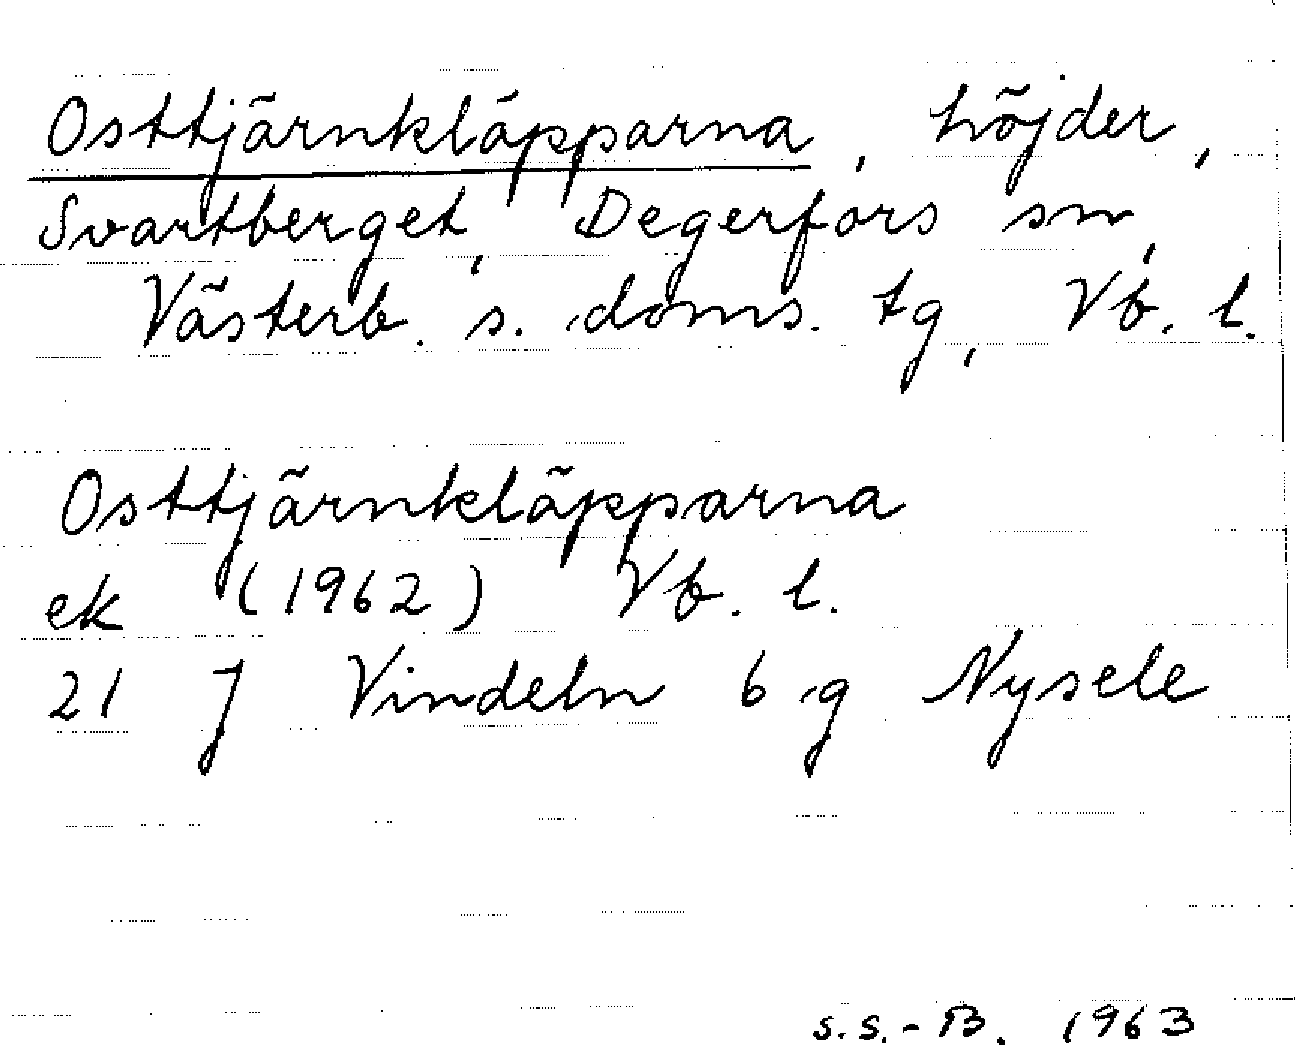 Osttjärnkläpparna, höjder,
Svartberget, Degerfors sn,
Västerb. s. doms. tg, Vb. l.
Osttjärnkläpparna
ek (1962) Vb. l.
21 J Vindeln 6 g Nysele
S.S.-B. 1963